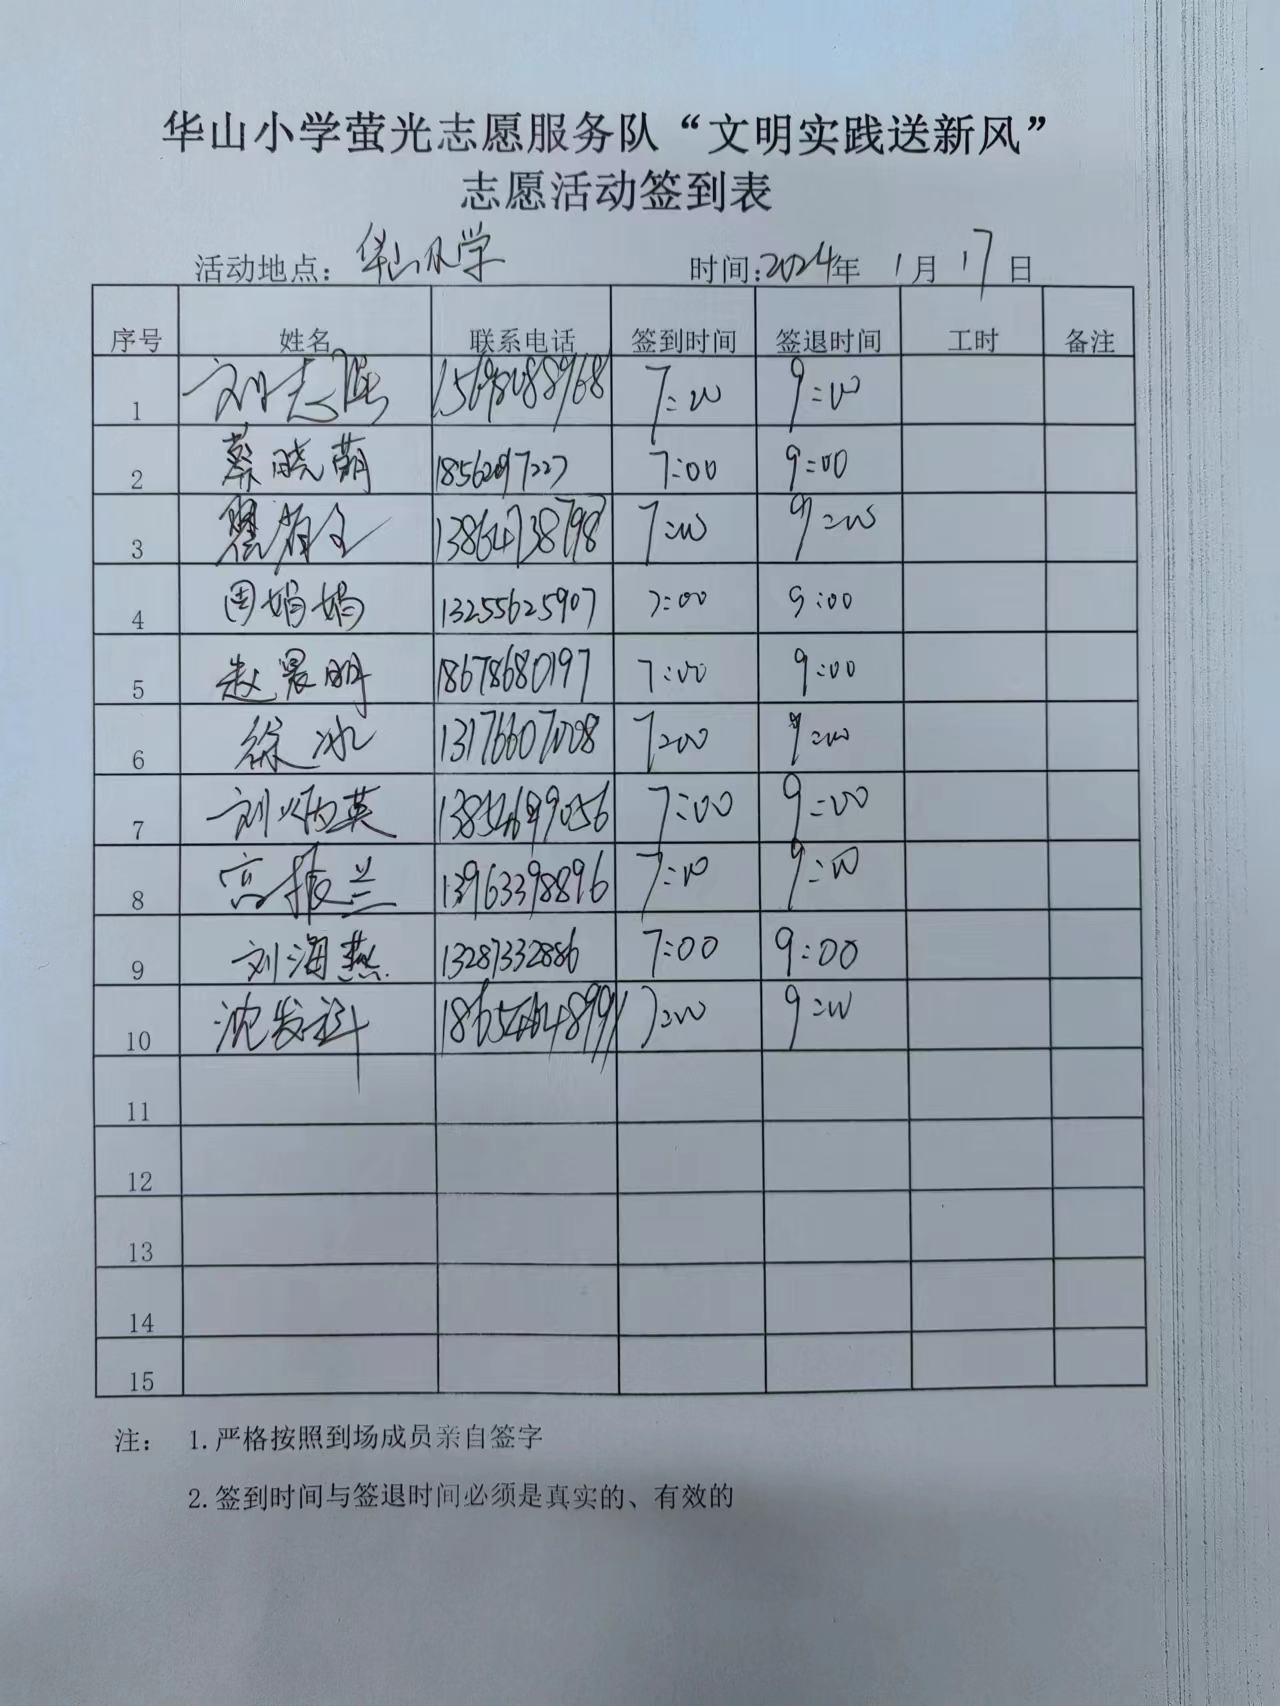 华山小学萤光志愿服务队“文明实践送新风”
志愿活动签到表
活动地点：华山小学 时间：2024年 1月 17日
序号 姓名 联系电话 签到时间 签退时间 工时 备注
1 刘志 7:00 9:00
2 蔡晓萌 7:00 9:00
3 翟有全 13864738798 7:00 9:00
4 周娟娟 13255625907 7:00 9:00
5 赵晨明 18678680197 7:00 9:00
6 徐冰 13176607008 7:00 9:00
7 刘炳英 13854699056 7:00 9:00
8 高振兰 13963398896 7:00 9:00
9 刘海燕 13287332886 7:00 9:00
10 沈发科 7:00 9:00
11
12
13
14
15
注： 1.严格按照到场成员亲自签字
2.签到时间与签退时间必须是真实的、有效的